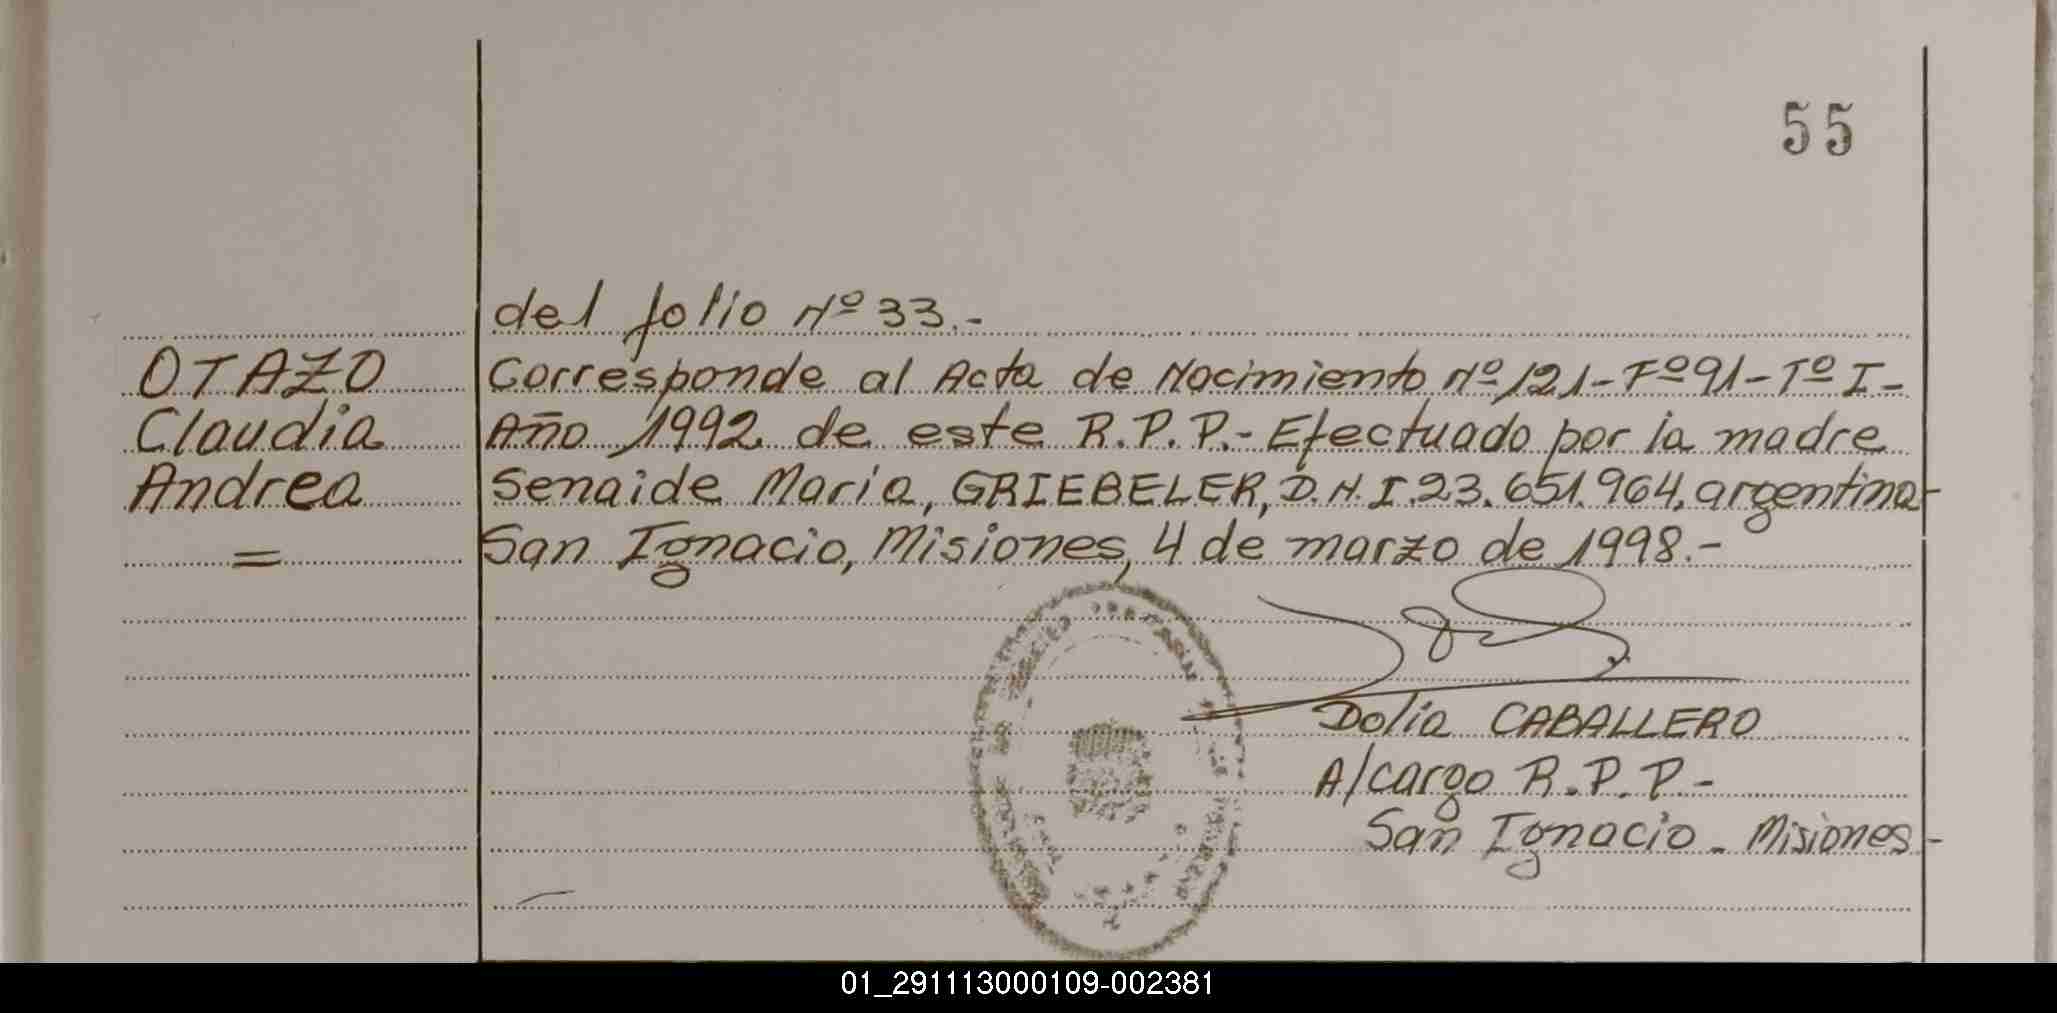 55
del folio Nº 33.-
OTAZO
Corresponde al Acta de Nacimiento Nº 121-Fº 91-Tº I-
Claudia
Año 1992 de este R.P.P.- Efectuado por la madre
Andrea
Senaide Maria, GRIEBELER, D.N.I.23.651.964, argentina-
=
San Ignacio, Misiones, 4 de marzo de 1998.-
Dolia CABALLERO
A/cargo R.P.P-
San Ignacio - Misiones-
01_291113000109-002381